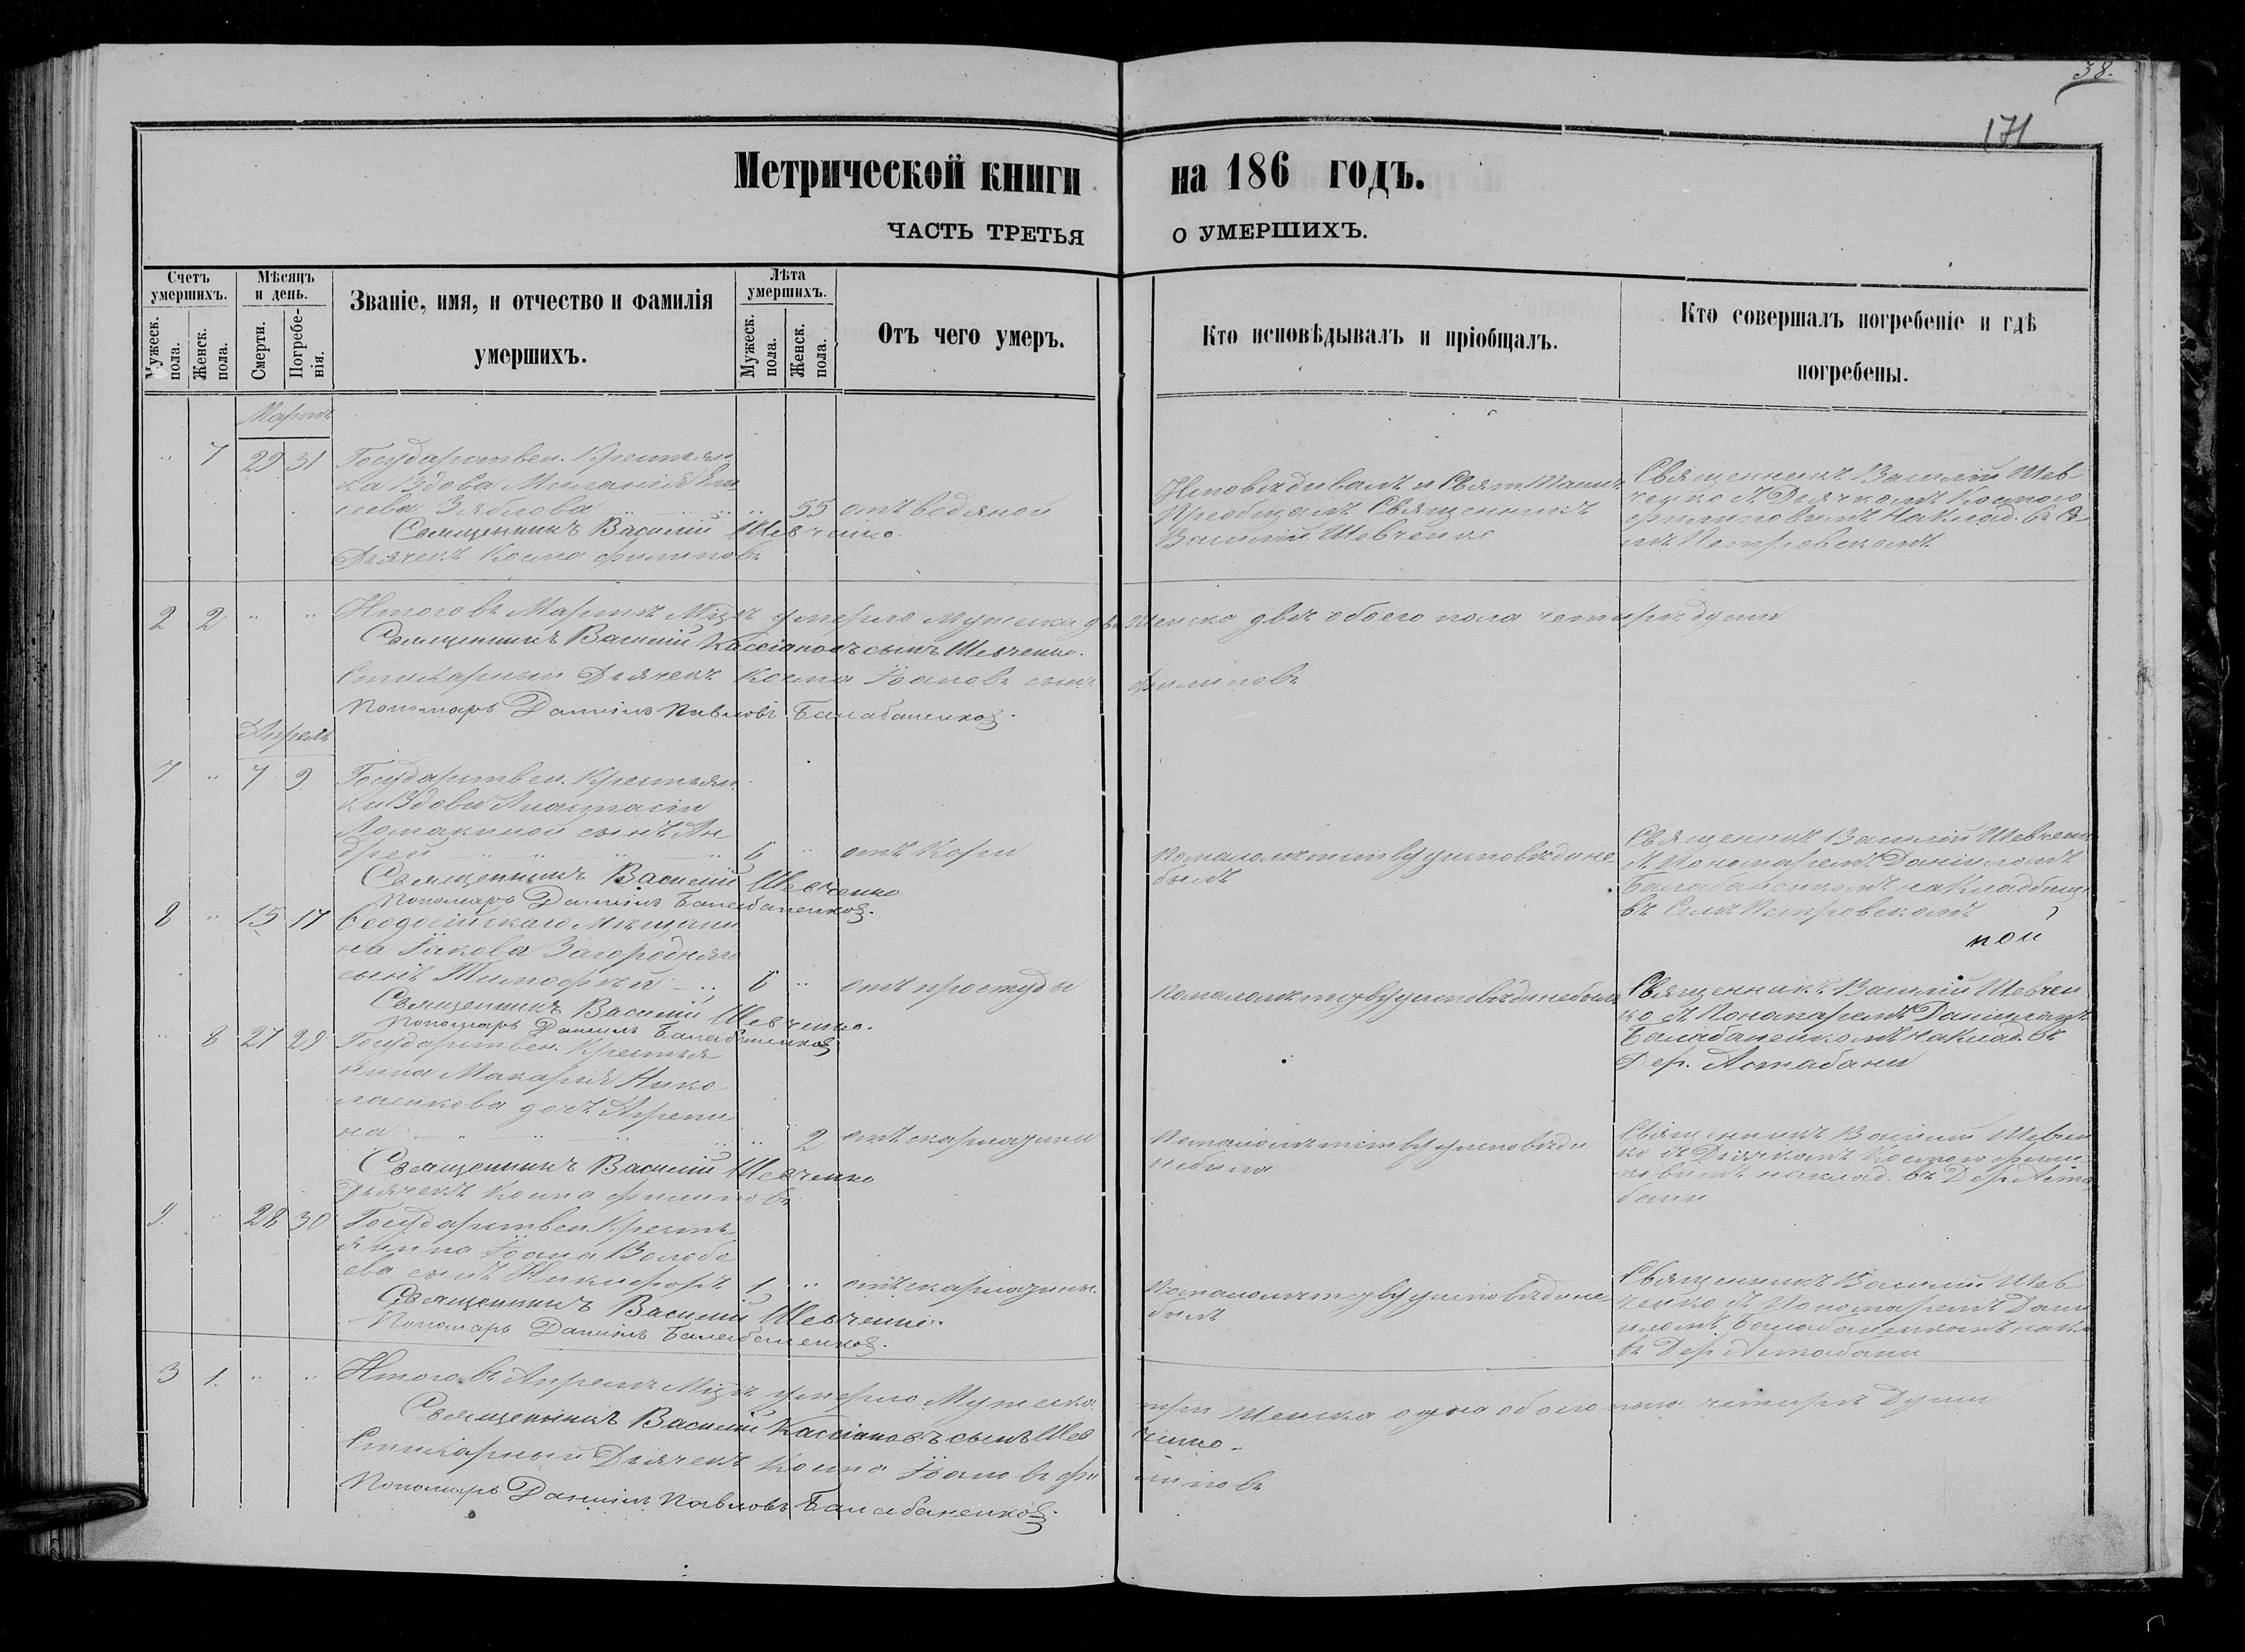 38.
171
Метрической книги на 186 годъ.
ЧАСТЬ ТРЕТЬЯ О УМЕРШИХЪ.
Счетъ умершихъ.
Мужеск. пола.
Женск. пола.
Мѣсяцъ и день.
Смерти.
Погребенія.
Званіе, имя, и отчество и фамилія умершихъ.
Лѣта умершихъ.
Мужеск. пола.
Женск. пола.
Отъ чего умеръ.
Кто исповѣдывалъ и пріобщалъ.
Кто совершалъ погребеніе и гдѣ погребены.
Мартъ
" 7 29 31 Государствен. Крестьян
ка Вдова Меланія
Зяблова " 55 отъ водяной
Священникъ Василій Шевченко.
Дьячекъ Косма Филиповъ
Исповѣдивалъ и Свят. Таинъ
Пріобщалъ Священникъ
Василій Шевченко
Священникъ Василій Шев
ченко съ Дьячкомъ Космою
Филиповымъ на клад. въ Се
лѣ Петровскомъ
2 2 " " Итого въ Мартѣ Мцѣ умерло мужеска два женска двѣ обоего пола четыре души
Священникъ Василій Кассіановъ сынъ Шевченко.
Стихарный Дьячекъ Косма Іоановъ сынъ Филиповъ
Пономарь Даніилъ Павловъ Балабаненковъ.
Апрель
7 " 7 9 Государствен. Крестьян
ки Вдовы Анастасіи
Ломакиной сынъ Ан
дрей 6 " отъ Кори
Священникъ Василій Шевченко
Пономарь Даніилъ Балабаненковъ.
По малолѣтству у исповѣди не
былъ
Священникъ Василій Шевченко
съ Пономаремъ Даніиломъ
Балабаненкомъ на кладбищѣ
въ Селѣ Петровскомъ
8 " 15 17 Ѳеодосійскаго Мѣщани
на Іакова Загородняго
сынъ Тимофей 6 " отъ простуды
Священникъ Василій Шевченко.
Пономарь Даніилъ Балабаненковъ
По малолѣтству у исповѣди не былъ
Священникъ Василій Шевчен
ко съ Пономаремъ Даніиломъ
Балабаненкомъ на клад. въ
Дер. Астабани
" 8 27 29 Государствен. Крестья
нина Макарія Нико
лаенкова дочь Агрепи
на " 2 отъ скарлатины
Священникъ Василій Шевченко
Дьячекъ Косма Филиповъ
По малолѣтству у исповѣди
не была
Священникъ Василій Шевчен
ко съ Дьячкомъ Космою Фили
повымъ на клад. въ Дер. Аста
бани
9. " 28 30 Государствен. Кресть
янина Іоана Волобо
ева сынъ Никифоръ 1 " отъ скарлатины
Священникъ Василій Шевченко.
Пономарь Даніилъ Балабаненковъ.
По малолѣтству у исповѣди не
былъ
Священникъ Василій Шев
ченко съ Пономаремъ Дани
иломъ Балабаненкомъ на кл
въ Дер. Астабани
3 1. " " Итого въ Апрелѣ Мцѣ умерло Мужеска три Женска одна обоего пола четыре Души
Священникъ Василій Кассіановъ сынъ Шевченко.
Стихарный Дьячекъ Косма Іоановъ Филиповъ
Пономарь Даніилъ Павловъ Балабаненковъ.